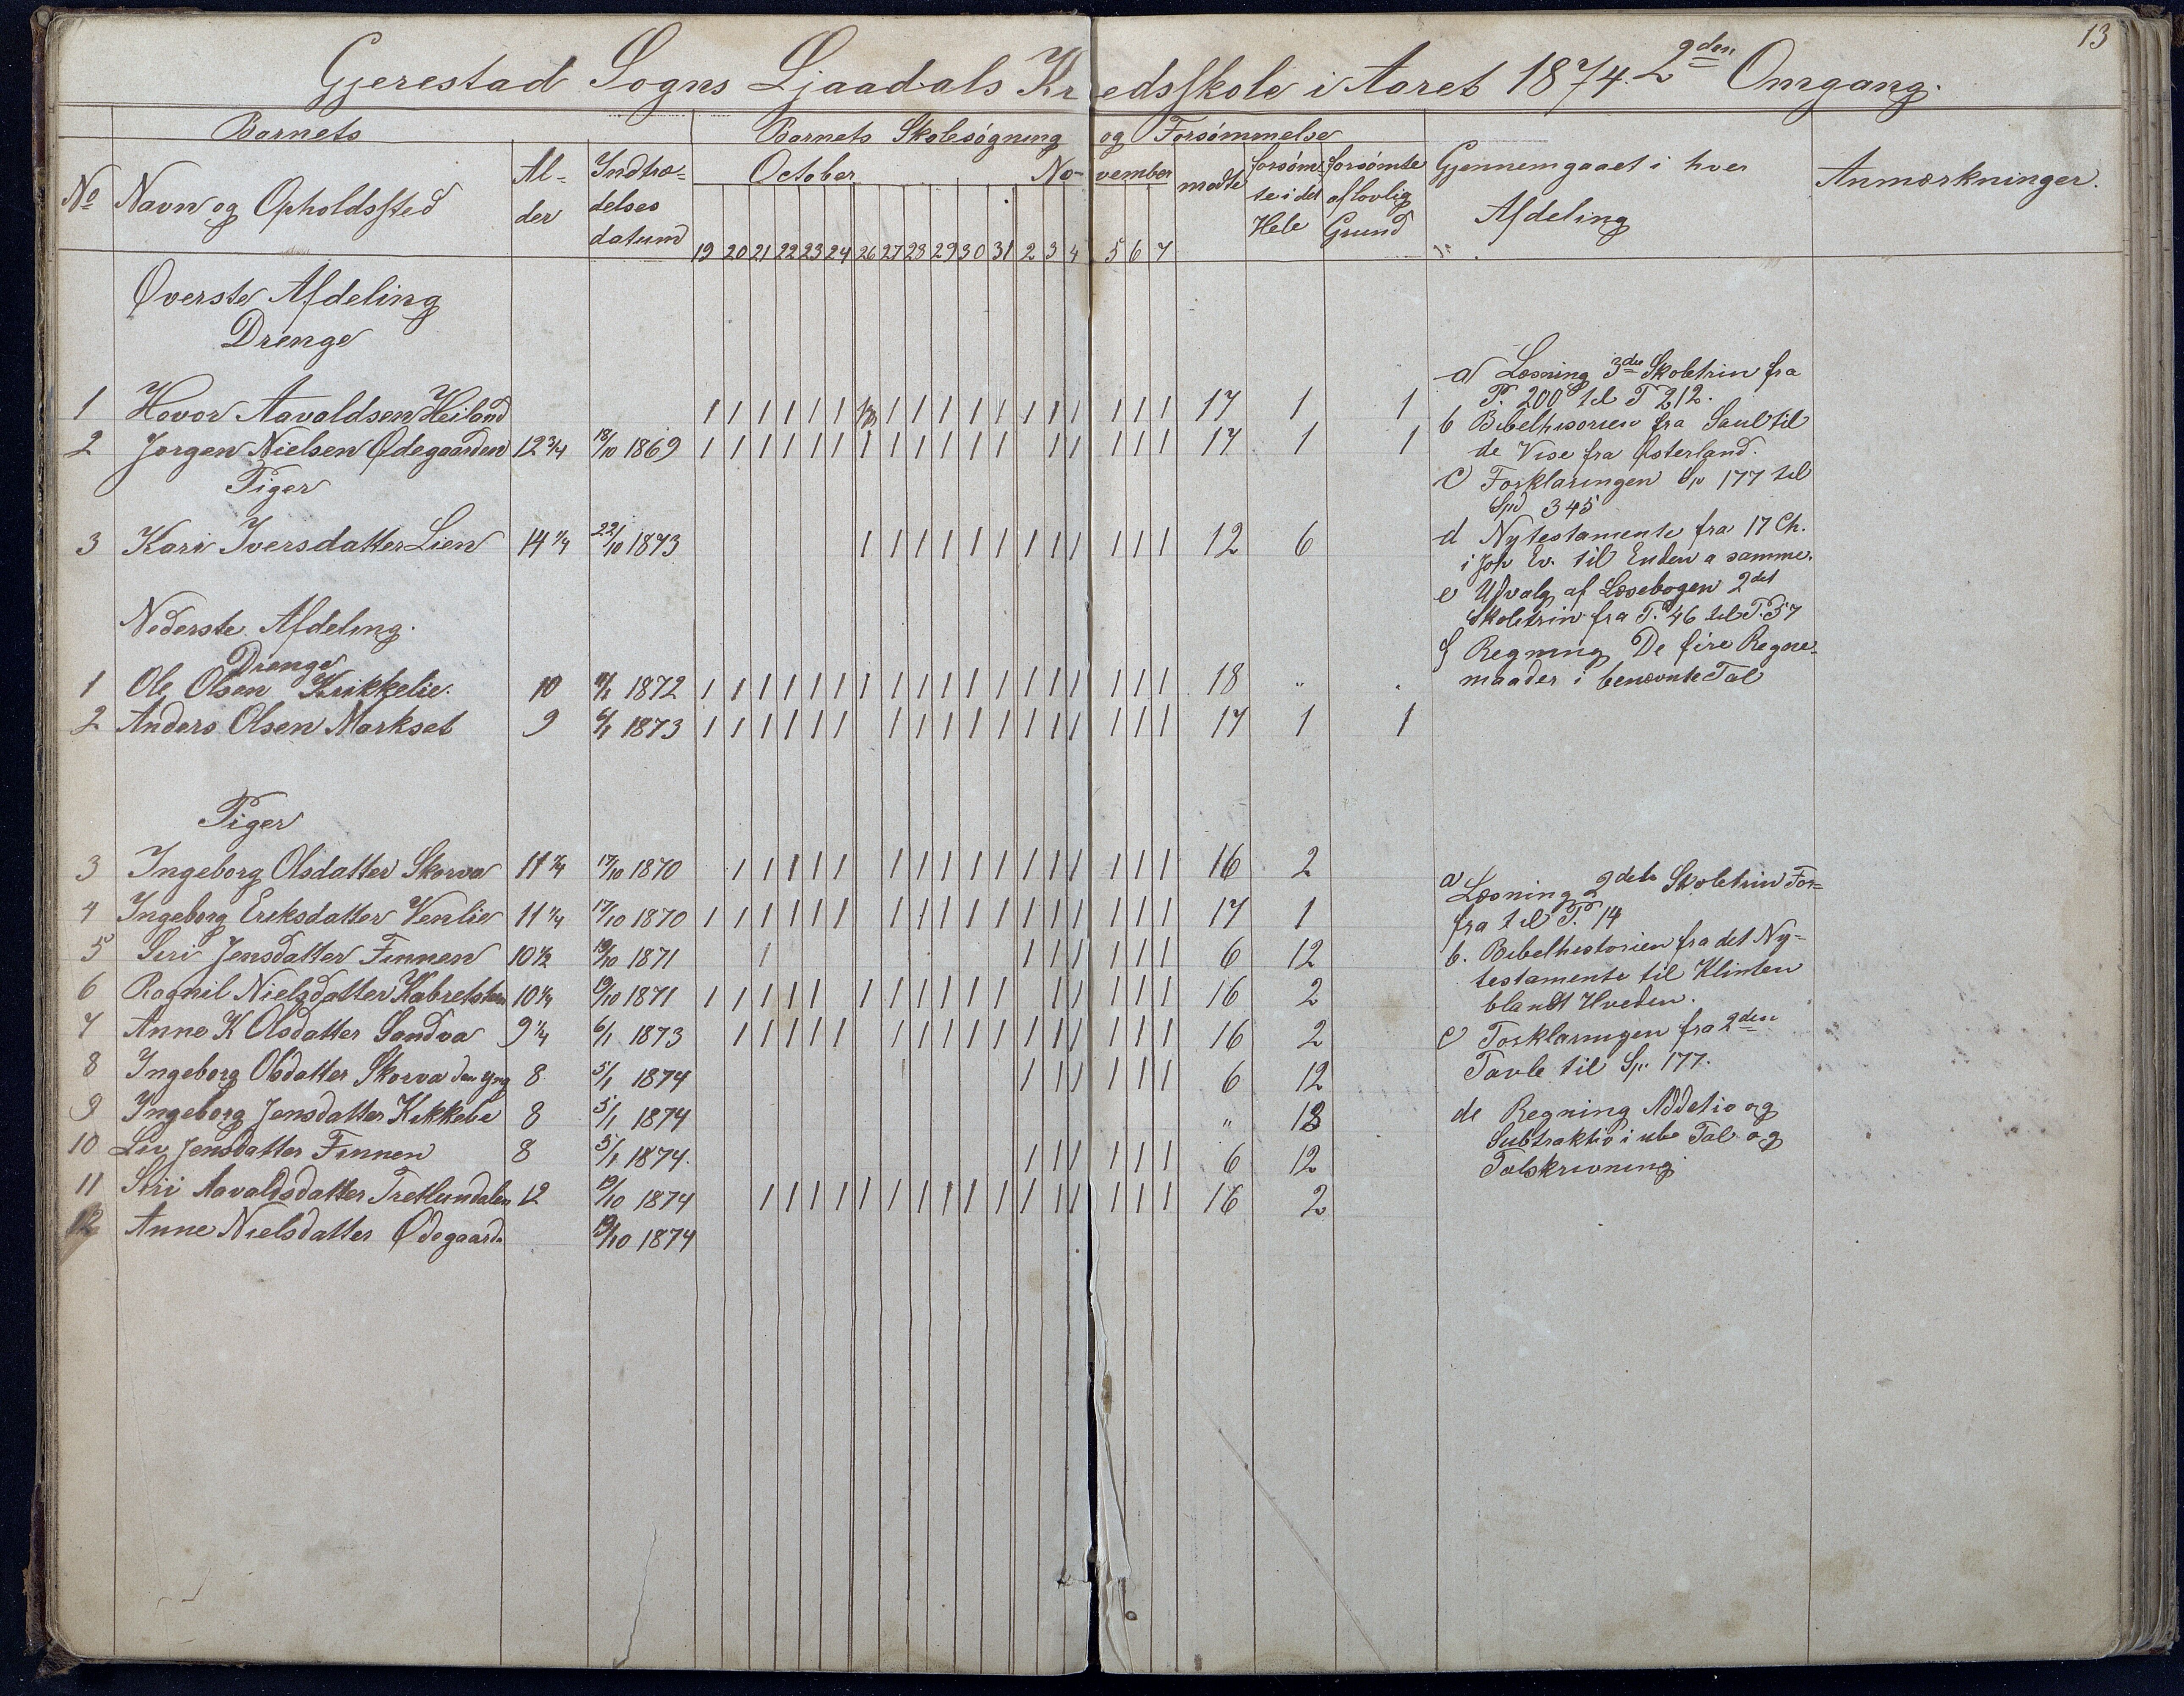 13
Gjerestad Sogns Ljaadals Kredsskole i Aaret 1874. 2den Omgang.
Barnets Barnets Skolesögning og Forsömmelse
No Navn og Opholdssted Al-der Indtræ-delses datum October No-vember mødte forsöm-te i det Hele forsömte af lovlig Grund Gjennemgaaet i hver Afdeling Anmærkninger.
19 20 21 22 23 24 26 27 28 29 30 31 2 3 4 5 6 7
Øverste Afdeling
Drenge
1 Hovor Aavaldsen Heiland 1 1 1 1 1 1 1 1 1 1 1 1 1 1 1 1 1 17 1 1
2 Jorgen Nielsen Ødegaarden 12 3/4 18/10 1869 1 1 1 1 1 1 1 1 1 1 1 1 1 1 1 1 1 17 1 1
Piger
3 Kari Iversdatter Lien 14 1/4 22/10 1873 1 1 1 1 1 1 1 1 1 1 1 1 12 6
Nederste Afdeling.
Drenge
1 Ole Olsen Kukkelie. 10 1872 1 1 1 1 1 1 1 1 1 1 1 1 1 1 1 1 1 1 18 " "
2 Anders Olsen Markset 9 6/1 1873 1 1 1 1 1 1 1 1 1 1 1 1 1 1 1 1 1 17 1 1
Piger
3 Ingeborg Olsdatter Skorva 11 3/4 17/10 1870 1 1 1 1 1 1 1 1 1 1 1 1 1 1 1 1 16 2
4 Ingeborg Eriksdatter Venlie 11 1/4 17/10 1870 1 1 1 1 1 1 1 1 1 1 1 1 1 1 1 1 1 17 1
5 Siri Jensdatter Finnen 10 1/2 19/10 1871 1 1 1 1 1 1 1 6 12
6 Rognil Nielsdatter 10 1/4 19/10 1871 1 1 1 1 1 1 1 1 1 1 1 1 1 1 1 1 16 2
7 Anne K Olsdatter Sandva 9 1/4 6/1 1873 1 1 1 1 1 1 1 1 1 1 1 1 1 1 1 1 16 2
8 Ingeborg Olsdatter Skorva den yng 8 5/1 1874 1 1 1 1 1 1 6 12
9 Ingeborg Jensdatter Kukkelie 8 5/1 1874 " 18
10 Liv Jensdatter Finnen 8 5/1 1874. 1 1 1 1 1 1 6 12
11 Siri Aavaldsdatter Tretlundalen 12 19/10 1874 1 1 1 1 1 1 1 1 1 1 1 1 1 1 1 1 16 2
12 Anne Nielsdatter Ødegaard. 19/10 1874
a Læsning 3die Skoletrin fra
P. 200 til P 212.
b Bibelhisorien fra Saul til
de Vise fra Østerland.
c Forklaringen Sp 177 til
Sp 345
d Nytestamente fra 17 Ch.
i Joh Ev. til Enden a samme.
e Udvalg af Læsebogen 2det
Skoletrin fra P. 46 til P. 57
f Regning De fire Regne-
maader i benævnte Tal
a Læsning 2det Skoletrin For-
fra til P. 14
b. Bibelhistorien fra det Ny-
testamente til Klinten
blandt Hveden.
c Forklaringen fra 2den
Tavle til Sp. 177.
de Regning Addetio og
Subtraktio i ube Tal og
Talskrivning